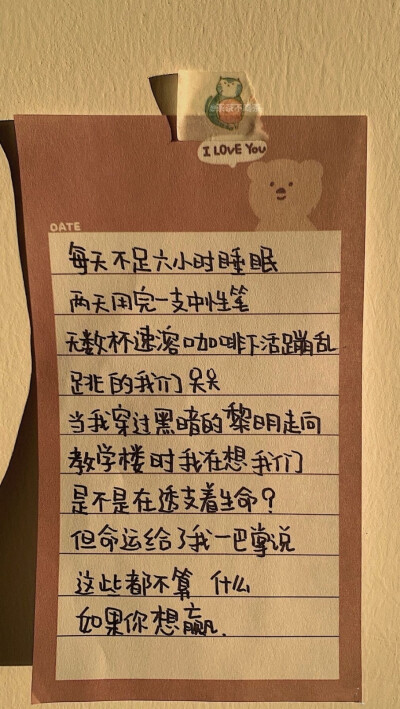 I LOVE YOU
DATE
每天不足六小时睡眠
两天用完一支中性笔
无数杯速溶咖啡下活蹦乱
跳的我们
当我穿过黑暗的黎明走向
教学楼时我在想我们
是不是在透支着生命?
但命运给了我一巴掌说
这些都不算 什么
如果你想赢.